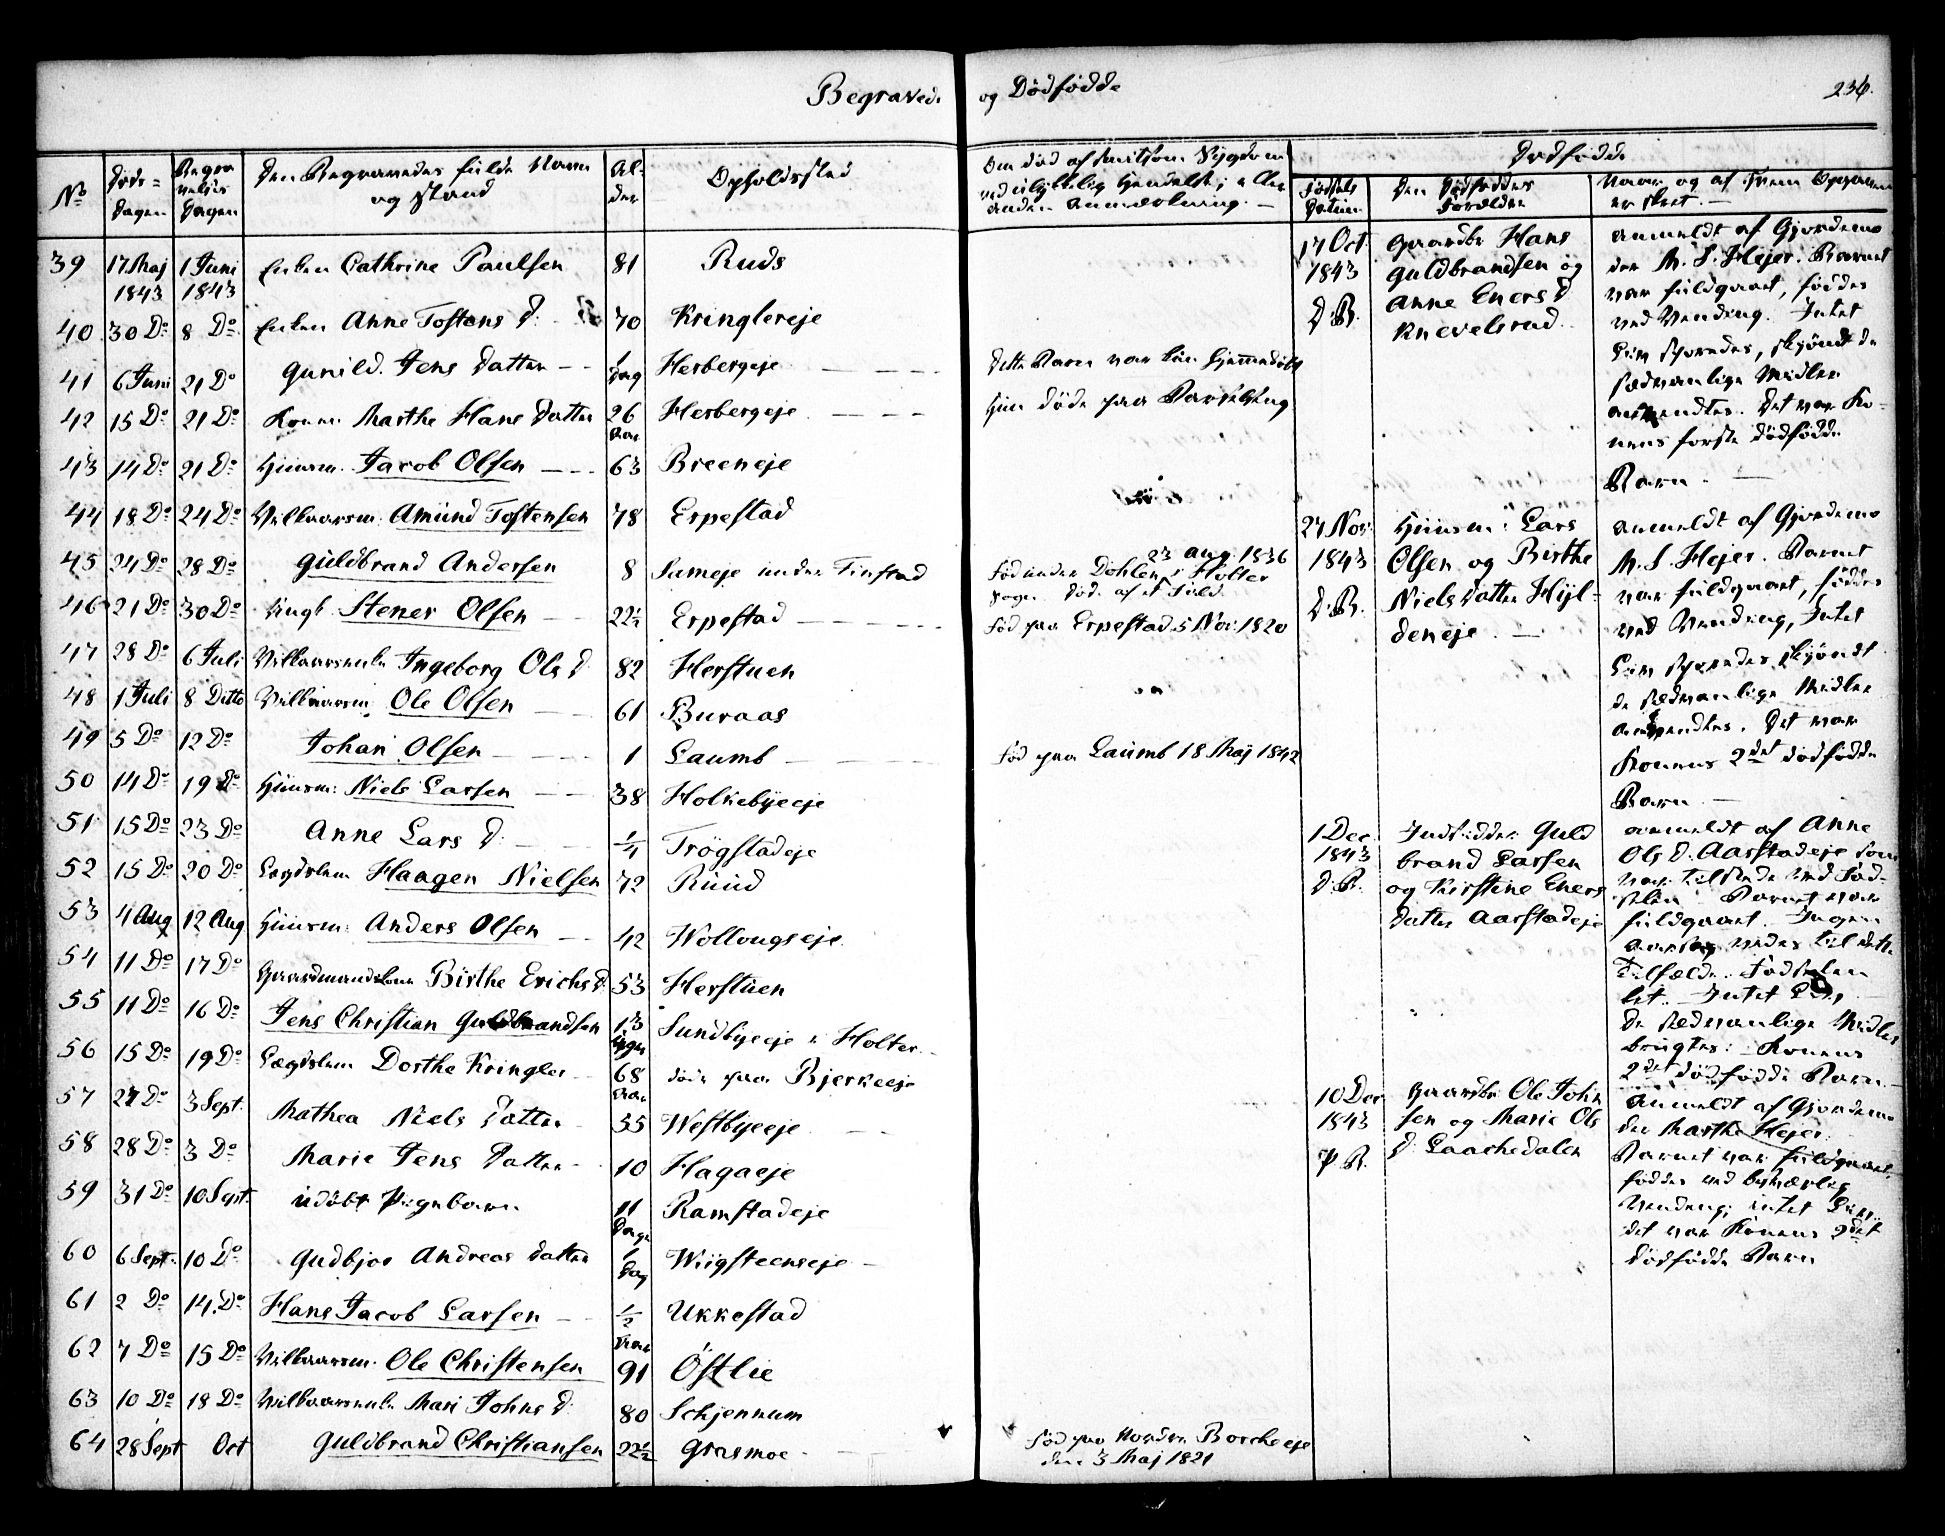 Begravede og Dødfødde
236.
No
Døds=
dagen
Begra
velses
Dagen
Den Begravedes fulde Navn
og Stand
Al-
der
Opholdssted
Om død af smitsom Sygdom
ved ulykkelig Hendelse, eller
anden Anmærkning. —
Dødfødde
Fødsels
Datum
Den Dødføddes
Forældre
Naar og af hvem Opgaven
er skeet. —
39 17 Maj 1843 1 Juni 1843 Enken Cathrine Paulsen 81 Ruds
40 30 Do 8 Do Enken Anne Tostens D. 70 Kringlereje
41 6 Juni 21 Do Gunild Jens Datter 1 Dag Herbergeje Dette Barn var kun hjemmedøbt
42 15 Do 21 Do Konen Marthe Hans Datter 26 Aar Herbergeje Hun døde paa Barselseng
43 14 Do 21 Do Huusm. Jacob Olsen 63 Breeneje
44 18 Do 24 Do Vilkaarsm. Amund Tostensen 78 Erpestad
45 24 Do 28 Do Guldbrand Andersen 8 Sumeje under Finstad Fød under Døhlen i Holter 23 Aug. 1836
Sogn. Døde af et Fald
46 21 Do 30 Do Ungk. Stener Olsen 22½ Erpestad Fød paa Erpestad 5 Nov. 1820
47 28 Do 6 Juli Vilkaarsenke Ingeborg Ols D. 82 Herstuen
48 1 Juli 8 Ditto Vilkaarsm. Ole Olsen 61 Buraas
49 5 Do 12 Do Johan Olsen 1 Laumb Fød paa Laumb 18 Maj 1842
50 14 Do 19 Do Huusm: Niels Larsen 38 Holkebyeeje
51 15 Do 23 Do Anne Lars D. ¼ Trøgstadeje
52 15 Do 20 Do Lægdslem Haagen Nielsen 72 Ruud
53 4 Aug 12 Aug Huusm: Anders Olsen 42 Wollougseje
54 11 Do 17 Do Gaardmandskone Birthe Erichs D. 53 Herstuen
55 11 Do 16 Do Jens Christian Guldbrandsen 13 Uger Sundbyeeje i Holter
56 15 Do 19 Do Lægdslem Dorthe Kringler 68 Aar døde paa Bjerkeeje
57 27 Do 3 Sept. Mathea Niels Datter 35 Westbyeeje
58 28 Do 3 Do Marie Jens Datter 10 Hagaeje
59 31 Do 10 Sept. udøbt Pigebarn 11 Dage Ramstadeje
60 6 Sept. 10 Do Gudbjør Andreas Datter 1 Dag Wiigsteenseje
61 2 Do 14. Do Hans Jacob Larsen ½ Aar Ukkestad
62 7 Do 15 Do Vilkaarsm. Ole Christensen 91 Østlie
63 10 Do 18 Do Vilkaarsenke Mari Johns D. 80 Schjennum
64 28 Sept Oct Guldbrand Christiansen 22½ Grasmoe Fød paa Nordre Borcheeje
den 3 Maj 1821
17 Oct
1843
D.B.
Gaardbr Hans
Guldbrandsen og
Anne Eners D
Knevelsrud.
anmeldt af Gjordemo
der M. S. Hejer. Barnet
var fuldgaaet,føddes
ved Vending. Intet
Liv sporedes, skjøndt de
sædvanlige Midler
anvendtes. Det var Ko-
nens første dødfødde
Barn. —
27 Nov.
1843
D.B.
Huusm: Lars
Olsen og Birthe
Niels Datter Hyl-
deneje. —
anmeldt af Gjordemo
M. S. Hejer. Barnet
var fuldgaaet, føddes
ved Vending, Intet
Liv sporedes, skjøndt
de sædvanlige Midler
anvendtes. Det var
Konens 2det dødfødde
Barn —
1 Dec.
1843
D.B.
Indsidder Guld
brand Larsen
og Kirstine Eners
Datter Aarstadeje
anmeldt af Anne
Ols D. Aarstadeje som
var tilstede ved Fød-
selen. Barnet var
fuldgaaet. Ingen
Aarsag vides til dette
Tilfælde. Fødselen
let. — Intet Liv,
de sædvanlige Midler
brugtes: — Konens
2det dødfødde Barn —
10 Dec
1843
P.B.
Gaardbr. Ole John
sen og Marie Ols
D. Laachedalen
anmeldt af Gjordemo
der Marthe Hejer.
Barnet var fuldgaaet,
føddes ved besværlig
Vending; intet Liv;
det var Konens 2det
dødfødde Barn